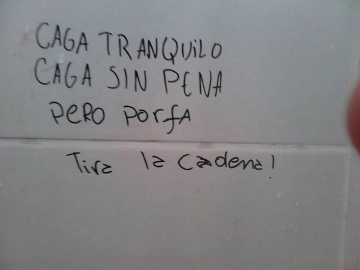 CAGA TRANQUILO
CAGA SIN PENA
PERO PORFA
Tira la cadena!